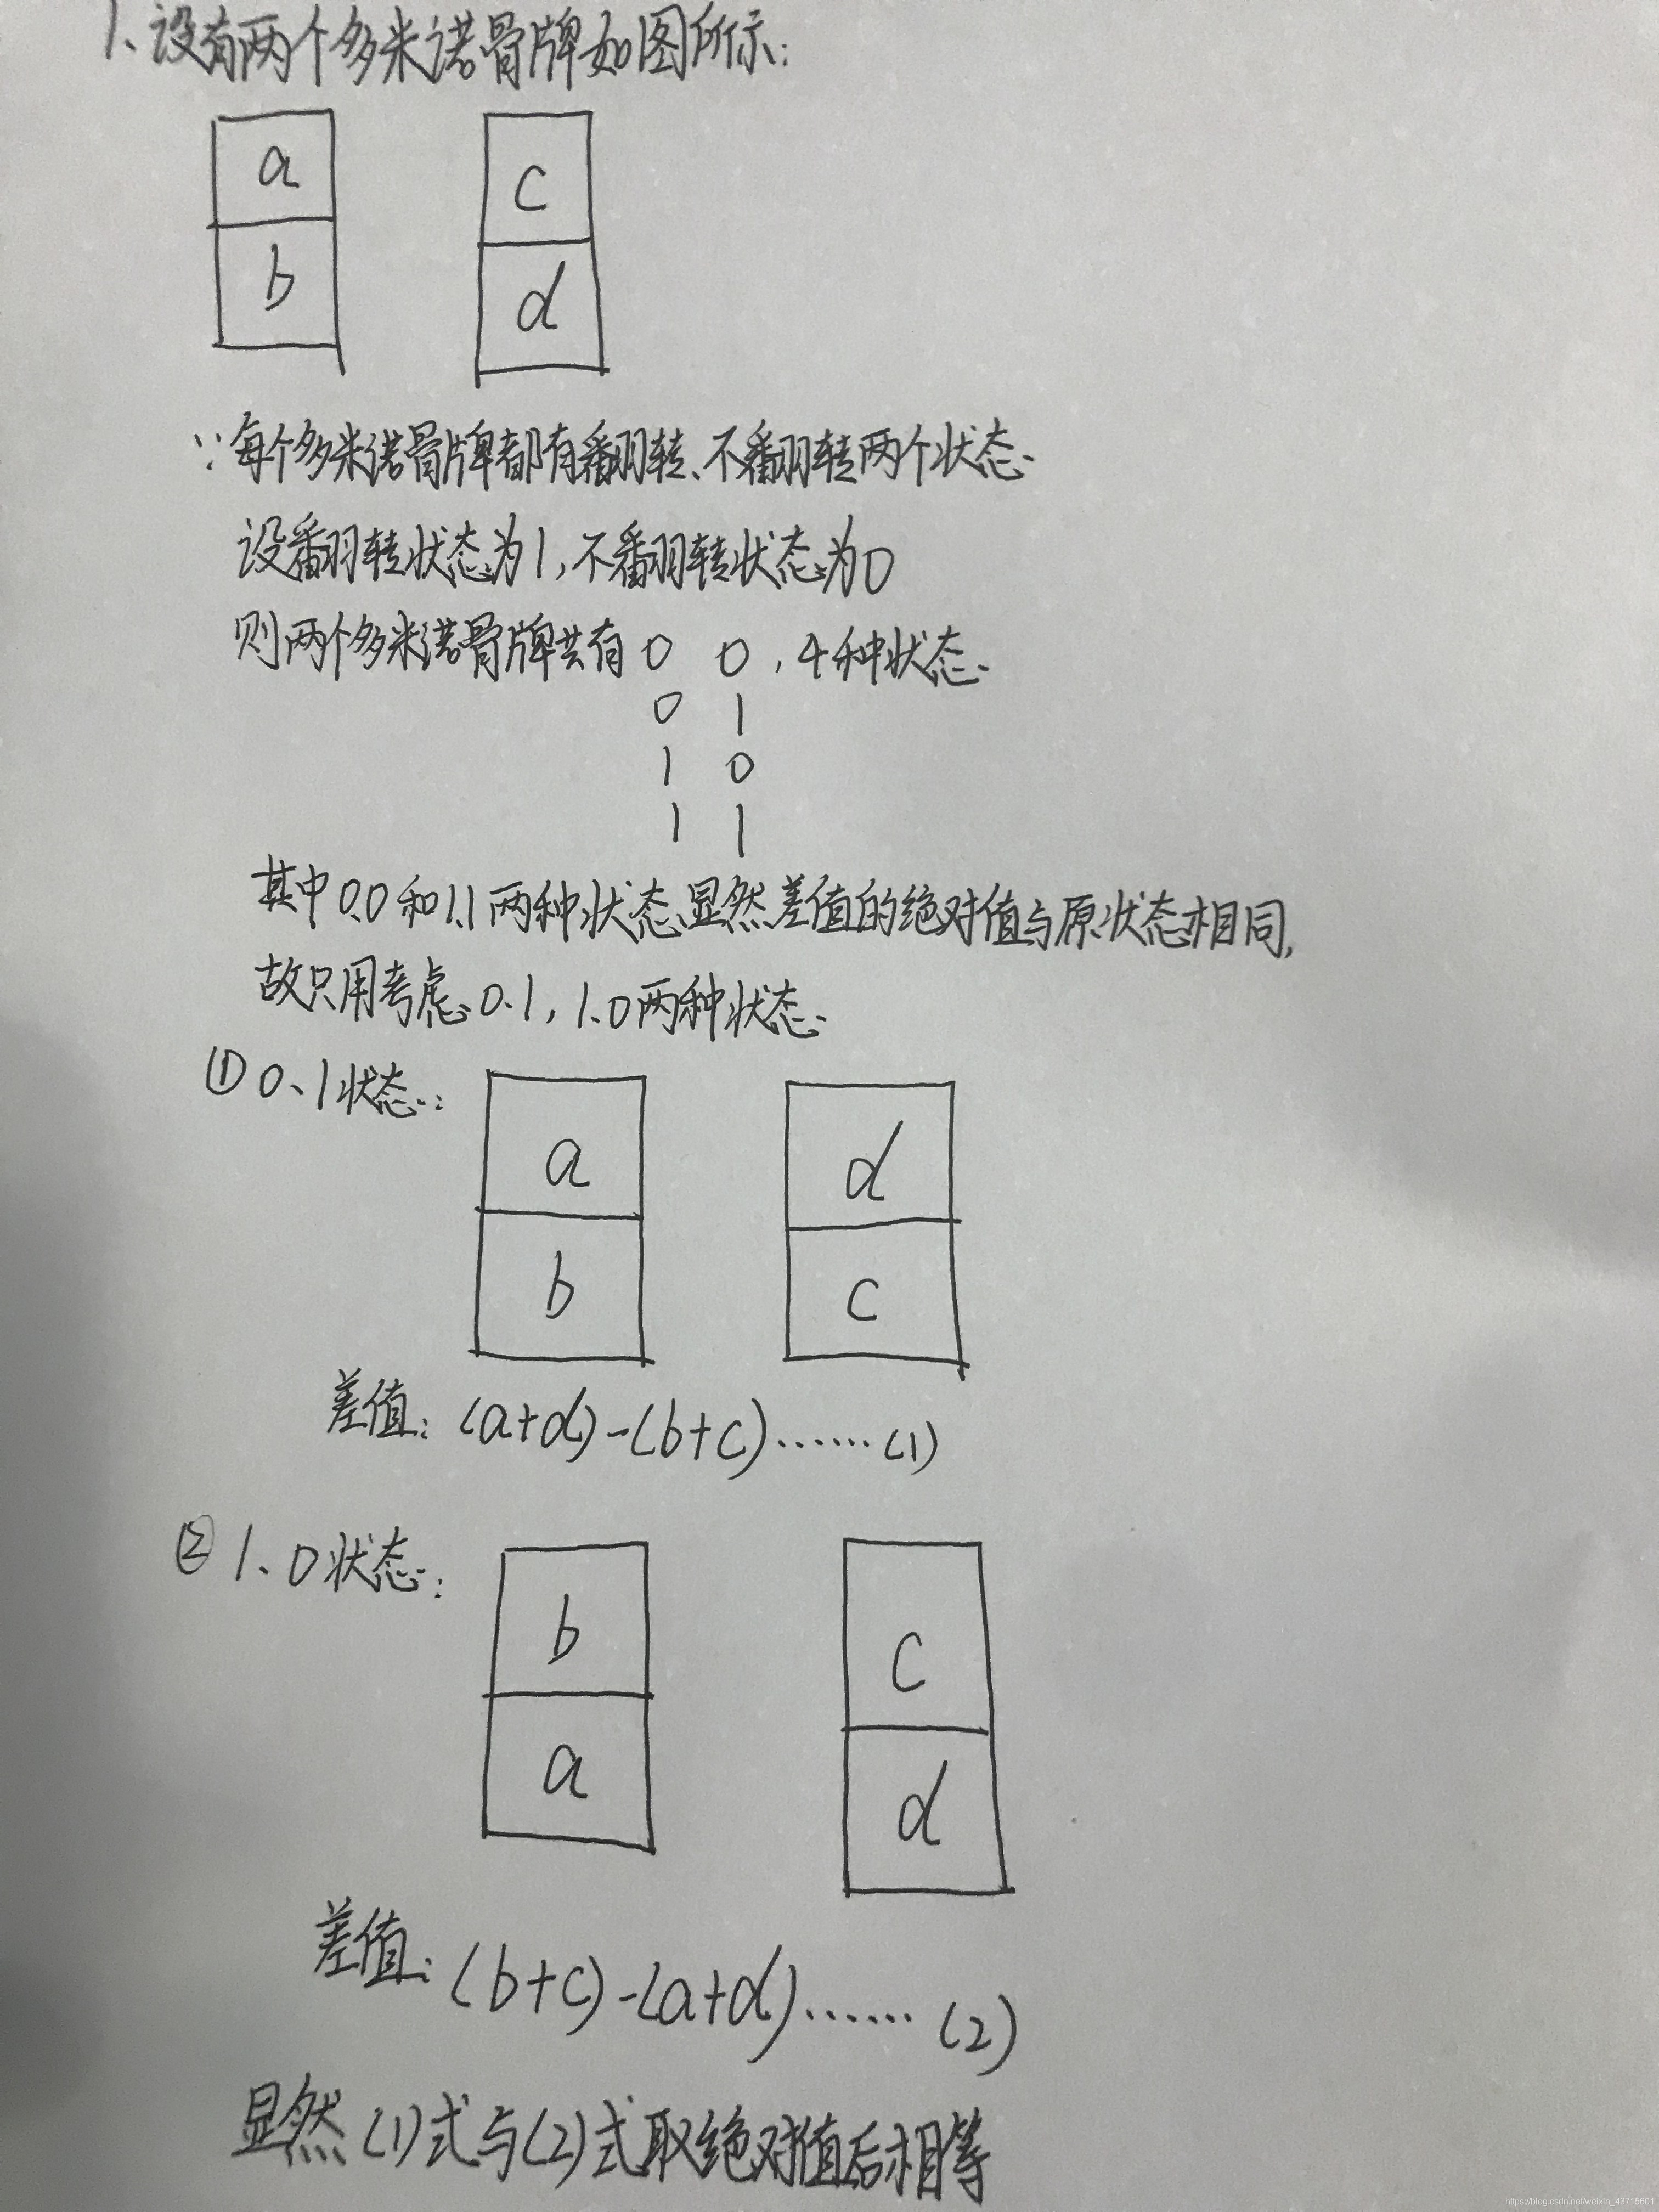 1、设有两个多米诺骨牌如图所示:
a
b
c
d
∵每个多米诺骨牌都有翻转、不翻转两个状态.
设翻转状态为1,不翻转状态为0
则两个多米诺骨牌共有 0 0 ,4种状态.
0 1
1 0
1 1
其中0.0和1.1两种状态显然差值的绝对值与原状态相同,
故只用考虑0.1,1.0两种状态.
① 0、1状态:
a
b
d
c
差值: (a+d)-(b+c)……(1)
② 1、0状态:
b
a
c
d
差值: (b+c)-(a+d)…… (2)
显然(1)式与(2)式取绝对值后相等
https://blog.csdn.net/weixin_43715601